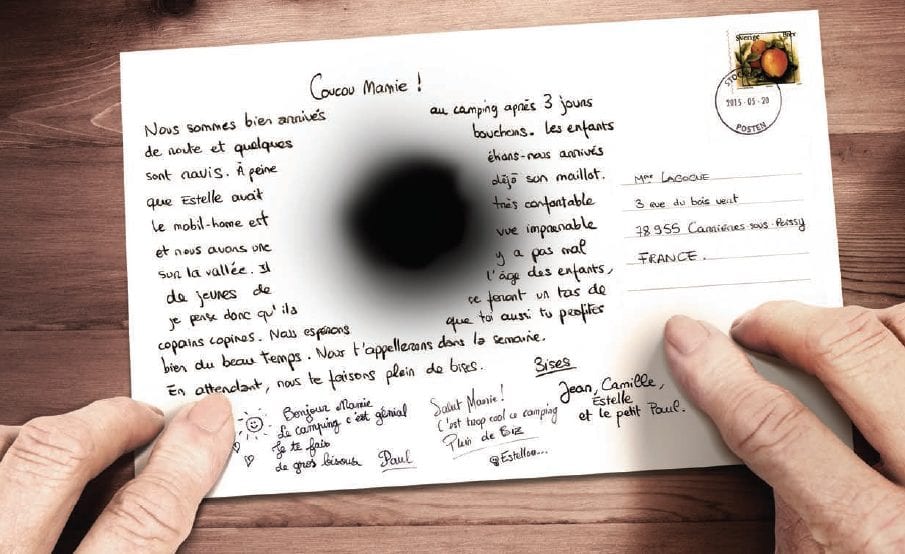 Coucou Mamie !
Nous sommes bien arrivés au camping après 3 jours
de route et quelques bouchons. Les enfants
sont ravis. À peine étions-nous arrivés
que Estelle avait déjà son maillot.
le mobil-home est très confortable
et nous avons une vue imprenable
sur la vallée. Il y a pas mal
de jeunes de l'âge des enfants,
je pense donc qu'ils se feront un tas de
copains copines. Nous espérons que toi aussi tu profites
bien du beau temps. Nous t'appellerons dans la semaine.
En attendant, nous te faisons plein de bises.
Bises
Jean, Camille,
Estelle
et le petit Paul.
Bonjour Mamie
Le camping c'est génial
Je te fais
de gros bisous Paul
Salut Mamie !
C'est trop cool ce camping
Plein de Biz
@Estellou...
Sverige Brev
2015-05-20
POSTEN
Mme LACOQUE
3 rue du bois vert
78955 Carrières sous-Poissy
FRANCE.